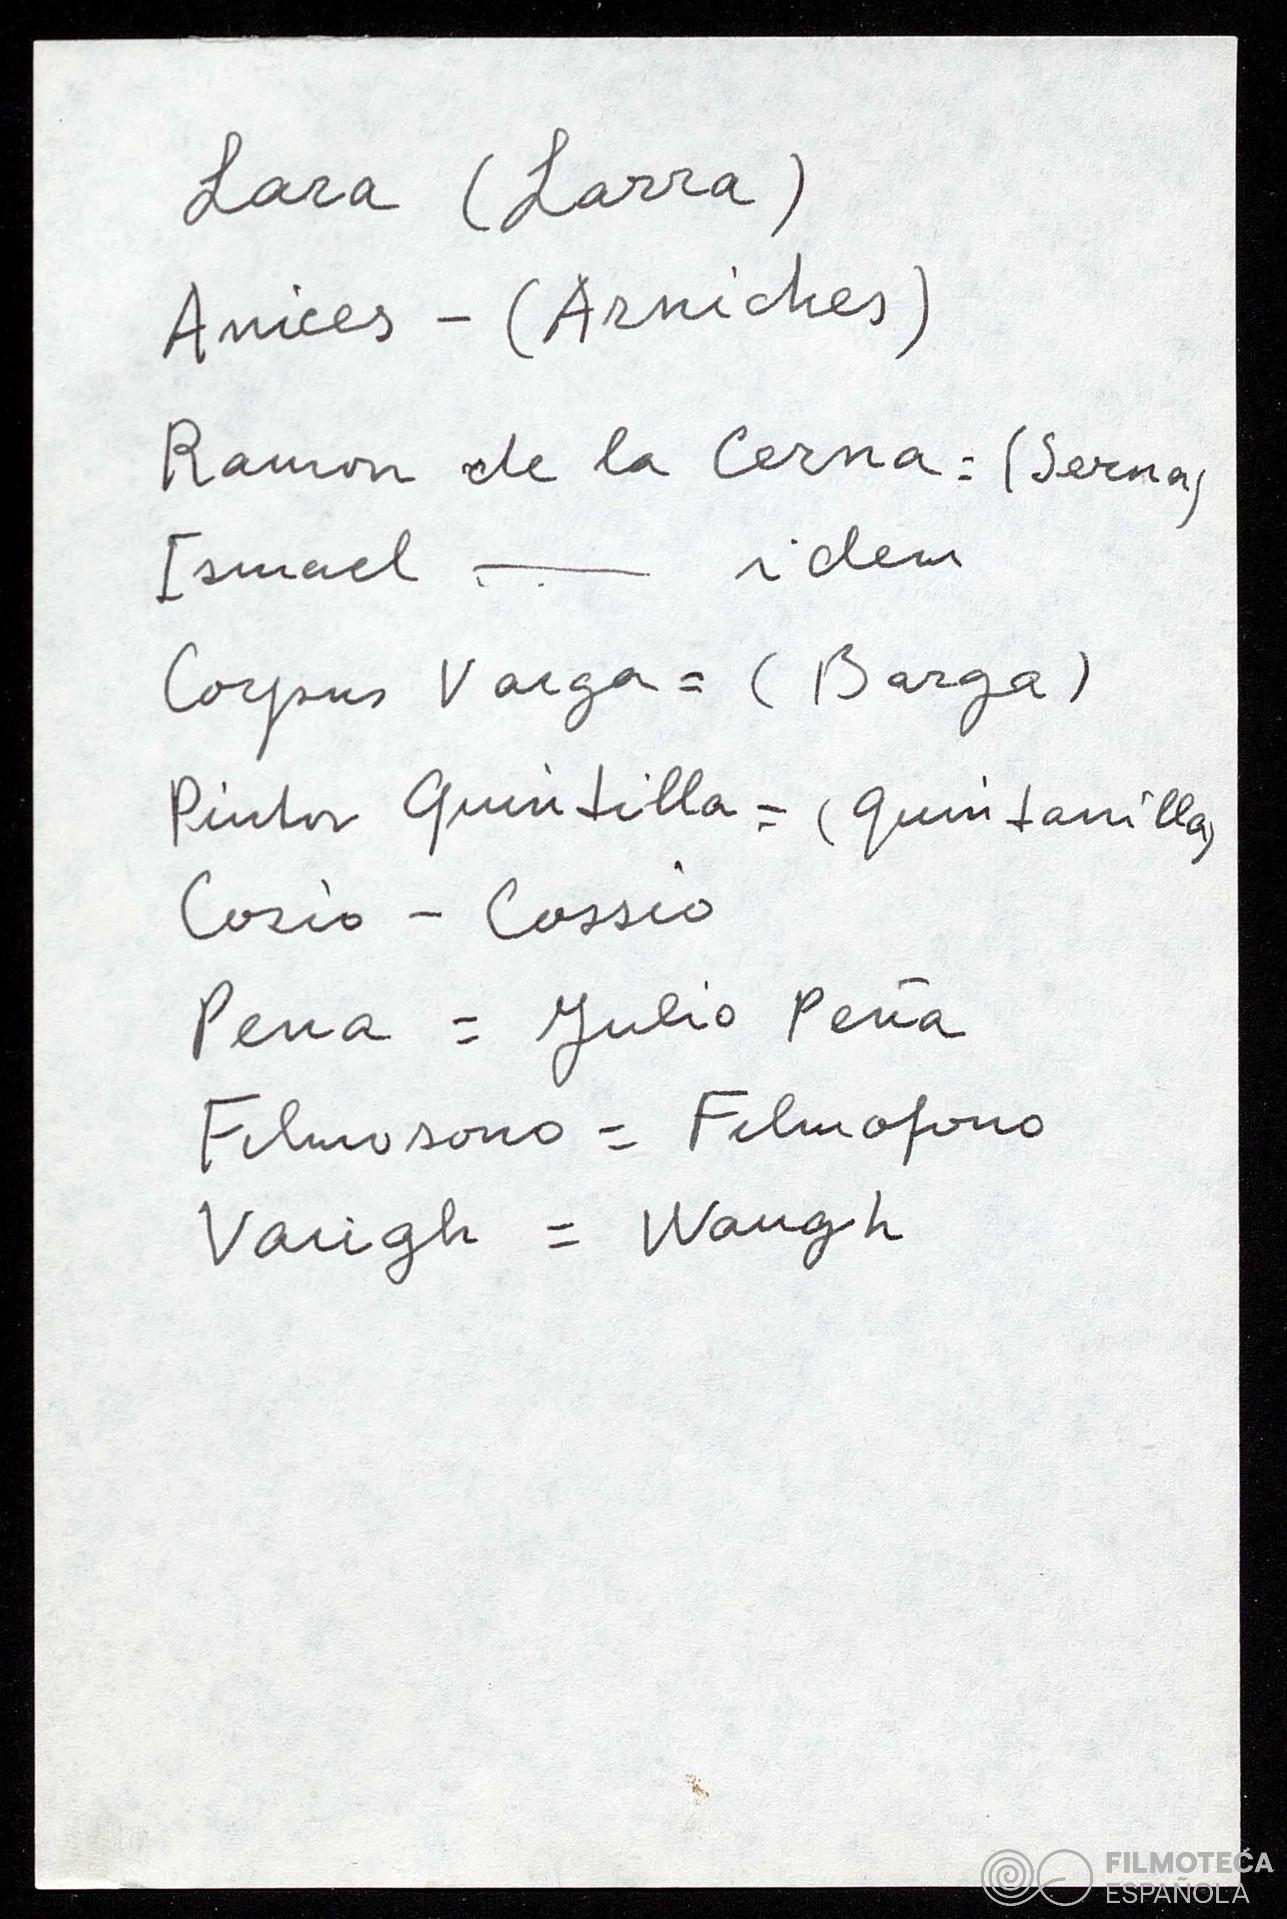 Lara (Larra)
Anices - (Arniches)
Ramon de la Cerna = (Serna)
Ismael —— idem
Corpus Varga = (Barga)
Pintor Quintilla = (Quintanilla)
Cosio - Cossio
Pena = Julio Peña
Filmosono = Filmofono
Vaugh = Waugh
FILMOTECA
ESPAÑOLA